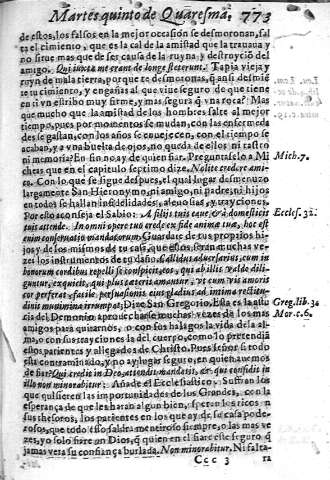 Martes quinto de Quaresma. 773
de estos, los falsos en la mejor occasion se desmoronan, fal-
ta el cimiento, que es la cal de la amistad que la trauaua y
no sirue mas que de ser causa de la ruyna y destruycio del
amigo. Qui iuxta me erant de longe steterunt. Tapia vieja y
ruyn de mala tierra, porque te desmoronas,
te tu cimiento, y engañas al que viue seguro de que tiene
en ti vn estribo muy firme, y mas seguro q̃ vna roca? Mas
que mucho que la amistad de los hombres falte al mejor
tiempo, pues por momentos se mudan, con las enfermeda
des se gastan, con los años se enuejecen, con el tiempo se
acaban, y a vna buelta de ojos, no queda de ellos ni rastro
ni memoria? En fin no ay de quien fiar. Preguntaselo a Mi
cheas que en el capitulo septimo dize, Nolite credere ami-
co. Con lo que se sigue despues, el qual lugar desmenuzo
largamente San Hieronymo, ni amigo, ni padre, ni hijos
en todos se hallan infidelidades, aleuosias, y trayciones.
Por esto aconseja el Sabio: A filijs tuis caue, & a domesticis
tuis attende. In omni opere tuo crede ex fide animæ tuæ, hoc est
enim conseruatio mandatorum. Guardate de tus propios hi-
jos y de los mismos de tu casa, que estos seran muchas ve-
zes los instrumentos de tu daño. Callidus aduersarius, cum in
bonorum cordibus repelli se conspicit, eos, qui ab illis valde dili-
guntur, exquirit,
dize San Gregorio. Esta es la astu
cia del Demonio, aprouecharse muchas vezes de los mas
amigos para quitarnos, o con sus halagos la vida del al-
ma, o con sus trayciones la del cuerpo, como lo pretendia
estos parientes y allegados de Christo. Pues señor si todo
esta contraminado, y no ay lugar seguro, en quien auemos
de fiar? Qui credit in Deo, attendit mandatis, & qui confidit in
illo non minorabitur: Añade el Ecclesiastico: Sufran los
que quisieren las importunidades de los Grandes, con la
esperança de que les haran algun bien, pechen los ricos a
sus thesoros, los parientes en los que ay de su casa pode-
rosos, que todo esso saldra mentiroso siempre, o las mas ve-
zes, yo solo fiare en Dios, q̃ quien en el fiare este seguro q̃
jamas vera su confiança burlada. Non minorabitur. Ni falta-
Ccc 3 ra
Mich. 7.
Eccles. 32.
Greg. lib. 34
Mor. c. 6.